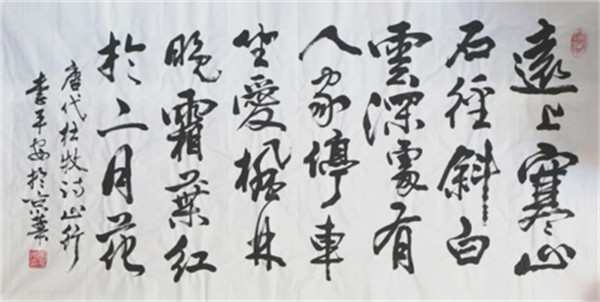 遠上寒山
石徑斜白
雲深處有
人家停車
坐愛楓林
晚霜葉紅
於二月花
唐代杜牧诗山行
李平安於京華